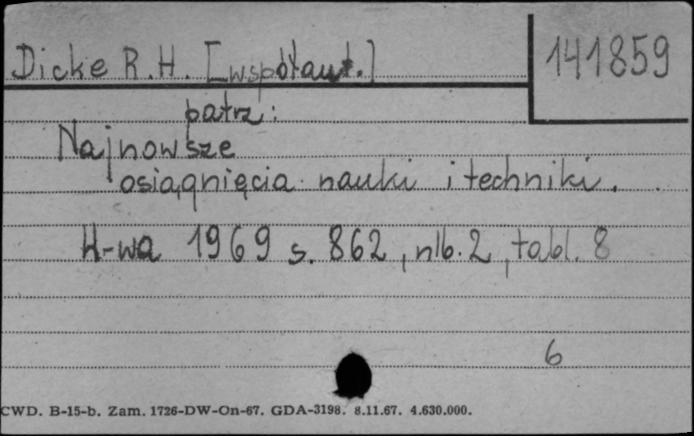 Dicke R.H. [współaut.]
141859
patrz:
Najnowsze
osiągnięcia nauki i techniki.
W-wa 1969 s. 862, nlb. 2, tabl. 8
6
CWD. B-15-b. Zam. 1726-DW-On-67. GDA-3198. 8.11.67. 4.630.000.